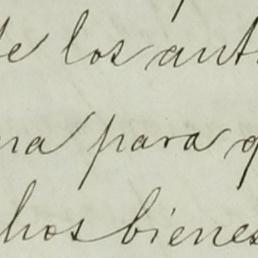 de los ant
na para q
hos bienes